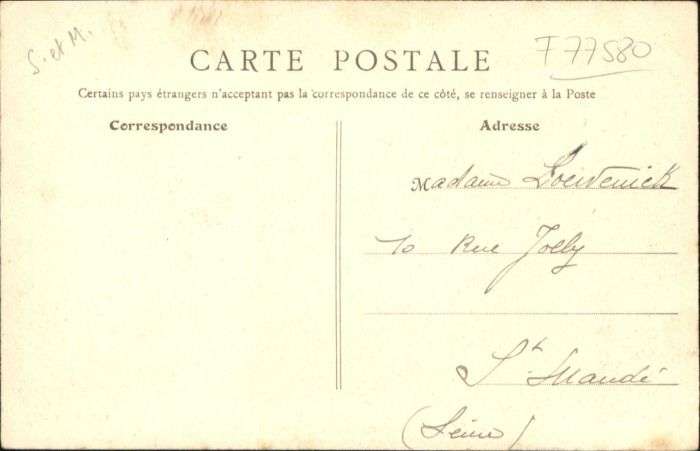 S. et M.
F 77580
CARTE POSTALE
Certains pays étrangers n'acceptant pas la correspondance de ce côté, se renseigner à la Poste
Correspondance
Adresse
Madame Loewenick
10 Rue Jolly
St. Mandé
(Seine)